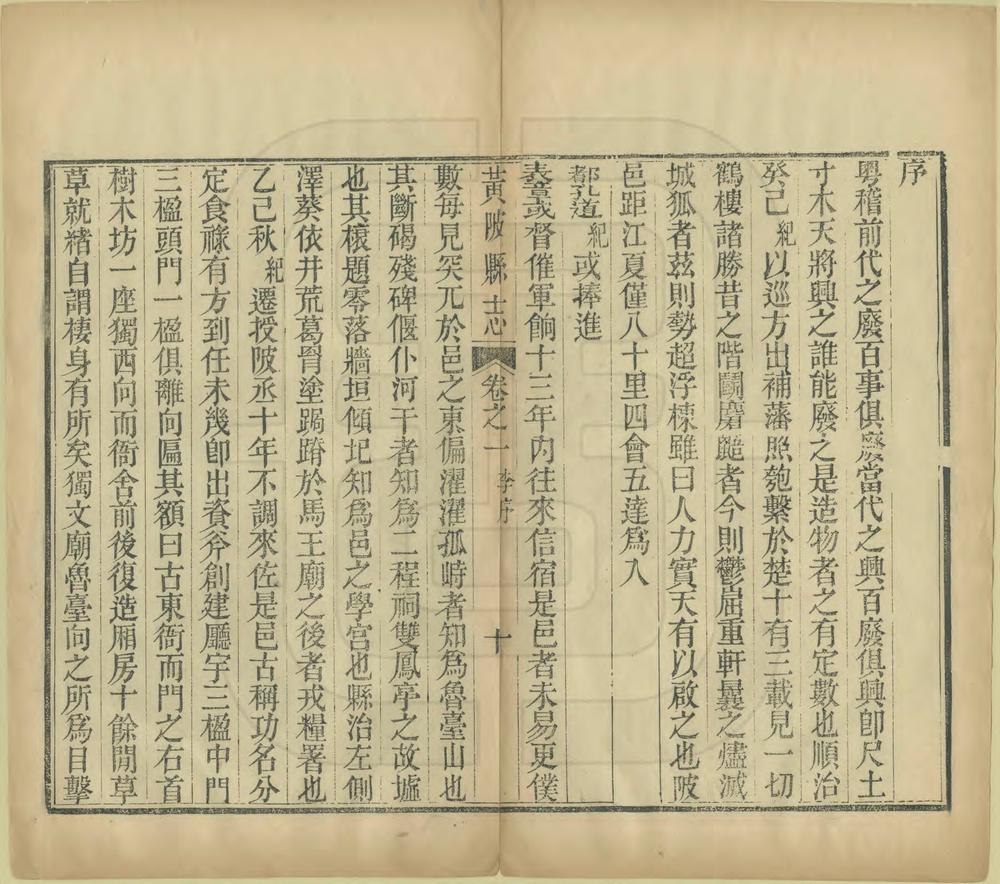 序
粵稽前代之廢百事俱廢當代之興百廢俱興卽尺土
寸木天將興之誰能廢之是造物者之有定數也順治
癸己紀以巡方出補藩照匏繫於楚十有三載見一切
鶴樓諸勝昔之階鬭麏鼯者今則鬱崫重軒曩之燼滅
城狐者茲則勢超浮棟雖曰人力實天有以啟之也陂
邑距江夏僅八十里四會五達爲入
都孔道紀或捧進
表章或督催軍餉十三年內往來信宿是邑者未易更僕
黃陂縣志 卷之一 李序 十
數每見突兀於邑之東偏濯濯孤峙者知爲魯臺山也
其斷碣殘碑偃仆河干者知爲二程祠雙鳳亭之故墟
也其榱題零落牆垣傾圮知爲邑之學宮也縣治左側
澤葵依井荒葛罥塗跼蹐於馬王廟之後者戎糧署也
乙己秋紀遷授陂丞十年不調來佐是邑古稱功名分
定食祿有方到任未幾卽出資斧創建廳宇三楹中門
三楹頭門一楹俱離向匾其額曰古東衙而門之右首
樹木坊一座獨西向而衙舍前後復造廂房十餘間草
草就緒自謂棲身有所矣獨文廟魯臺向之所爲目擊